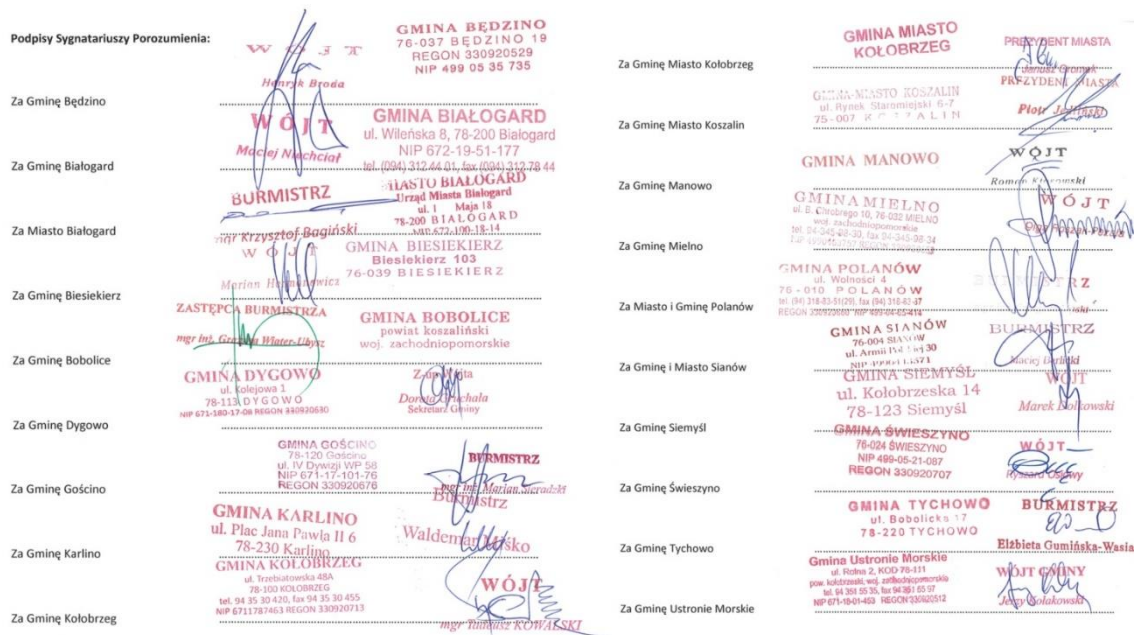 Podpisy Sygnatariuszy Porozumienia:
WÓJT
Henryk Broda
GMINA BĘDZINO
76-037 BĘDZINO 19
REGON 330920529
NIP 499 05 35 735
Za Gminę Będzino
WÓJT
Maciej Niechciał
GMINA BIAŁOGARD
ul. Wileńska 8, 78-200 Białogard
NIP 672-19-51-177
tel. (094) 312 44 01, fax (094) 312 78 44
Za Gminę Białogard
BURMISTRZ
mgr Krzysztof Bagiński
MIASTO BIAŁOGARD
Urząd Miasta Białogard
ul. 1 Maja 18
78-200 BIAŁOGARD
NIP 672-100-18-14
Za Miasto Białogard
WÓJT
Marian
GMINA BIESIEKIERZ
Biesiekierz 103
76-039 BIESIEKIERZ
Za Gminę Biesiekierz
ZASTĘPCA BURMISTRZA
mgr inż.
GMINA BOBOLICE
powiat koszaliński
woj. zachodniopomorskie
Za Gminę Bobolice
GMINA DYGOWO
ul. Kolejowa 1
78-113 DYGOWO
NIP 671-180-17-08 REGON 330920630
Dorota
Sekretarz Gminy
Za Gminę Dygowo
GMINA GOŚCINO
78-120 Gościno
ul. IV Dywizji WP 58
NIP 671-17-101-76
REGON 330920676
BURMISTRZ
mgr inż. Marian Sieradzki
Za Gminę Gościno
GMINA KARLINO
ul. Plac Jana Pawła II 6
78-230 Karlino
Burmistrz
Waldemar Miśko
Za Gminę Karlino
GMINA KOŁOBRZEG
ul. Trzebiatowska 48A
78-100 KOŁOBRZEG
tel. 94 35 30 420, fax 94 35 30 455
NIP 6711787463 REGON 330920713
WÓJT
mgr Tadeusz KOWALSKI
Za Gminę Kołobrzeg
GMINA MIASTO
KOŁOBRZEG
PREZYDENT MIASTA
Janusz Gromek
Za Gminę Miasto Kołobrzeg
GMINA-MIASTO KOSZALIN
ul. Rynek Staromiejski 6-7
75-007 KOSZALIN
PREZYDENT MIASTA
Piotr Jedliński
Za Gminę Miasto Koszalin
GMINA MANOWO
WÓJT
Roman
Za Gminę Manowo
GMINA MIELNO
ul. B. Chrobrego 10, 76-032 MIELNO
woj. zachodniopomorskie
WÓJT
Olga
Za Gminę Mielno
GMINA POLANÓW
ul. Wolności 4
76-010 POLANÓW
Za Miasto i Gminę Polanów
GMINA SIANÓW
76-004 SIANÓW
BURMISTRZ
Maciej Berlicki
Za Gminę i Miasto Sianów
GMINA SIEMYŚL
ul. Kołobrzeska 14
78-123 Siemyśl
WÓJT
Marek Dołkowski
Za Gminę Siemyśl
GMINA ŚWIESZYNO
76-024 ŚWIESZYNO
NIP 499-05-21-087
REGON 330920707
WÓJT
Ryszard Osiowy
Za Gminę Świeszyno
GMINA TYCHOWO
ul. Bobolicka 17
78-220 TYCHOWO
BURMISTRZ
Elżbieta Gumińska-Wasia
Za Gminę Tychowo
Gmina Ustronie Morskie
ul. Rolna 2, KOD 78-111
pow. kołobrzeski, woj. zachodniopomorskie
tel. 94 351 55 35, fax 94 351 55 97
NIP 671-18-01-453 REGON 330920512
WÓJT GMINY
Jerzy Kołakowski
Za Gminę Ustronie Morskie